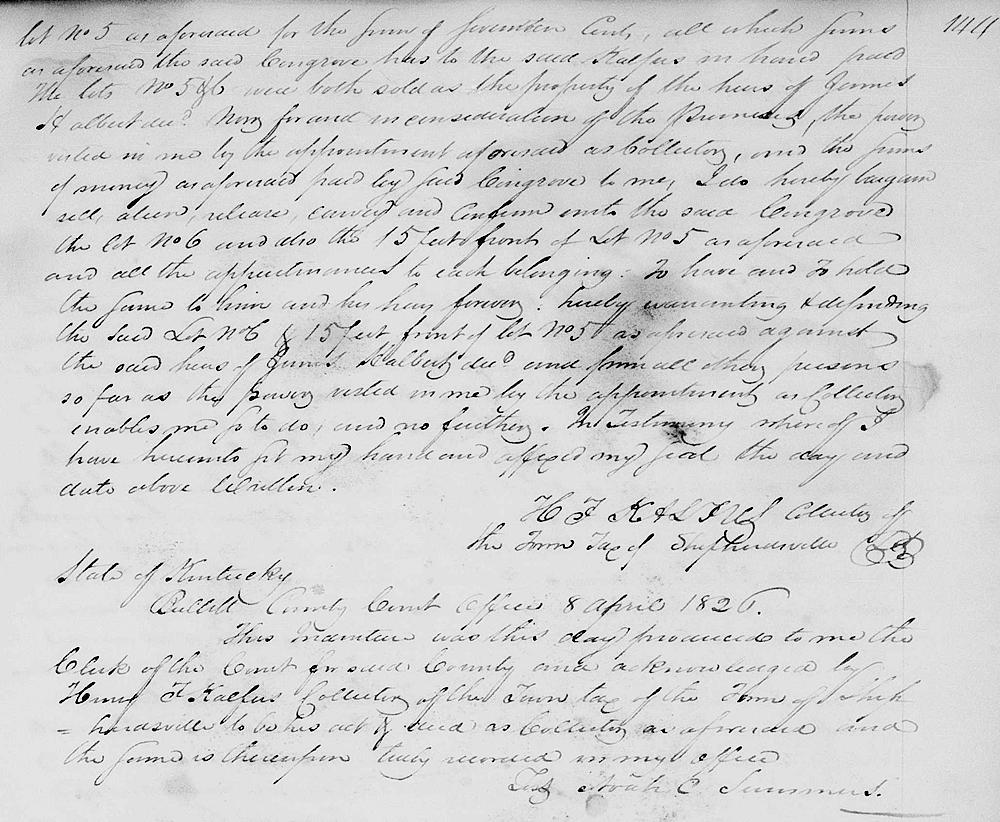 lot No 5 as aforesaid for the sum of Seventeen Cents, all which sums
as aforesaid the said Congrove has to the said Kalfus in hand paid
The lots No 5 & 6 were both sold as the property of the heirs of James
Halbert decd. Now for and in consideration of the Premises, the power
vested in me by the appointment aforesaid as Collector, and the sums
of money as aforesaid paid by said Congrove to me, I do hereby bargain
sell, alien, release, convey and confirm unto the said Congrove
the lot No 6 and also the 15 feet front of Lot No 5 as aforesaid
and all the appurtenances to each belonging. To have and To hold
the same to him and his heirs forever. hereby warranting & defending
the said Lot No 6 & 15 feet front of lot No 5 as aforesaid against
the said heirs of James Halbert decd and from all other persons
so far as the power vested in me by the appointment as Collector
enables me so to do, and no further. In Testimony whereof I
have hereunto set my hand and affixed my seal the day and
date above written.
H F KALFUS Collector of
the Town Tax of Shepherdsville
State of Kentucky
Bullitt County Court Office 8 April 1826.
This Indenture was this day produced to me the
Clerk of the Court for said County and acknowledged by
Henry F Kalfus Collector of the Town tax of the Town of Shep
=herdsville to be his act & deed as Collector as aforesaid and
the same is thereupon truly recorded in my office
Test Noah C Summers.